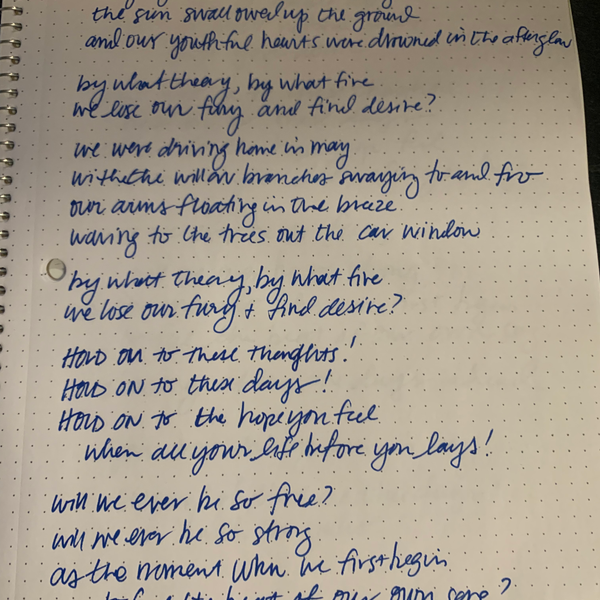 the sun swallowed up the ground
and our youthful hearts were drowned in the afterglow
by what theory, by what fire
we lose our fury and find desire?
we were driving home in may
with the willow branches swaying to and fro
our arms floating in the breeze
waving to the trees out the car window
by what theory, by what fire
we lose our fury + find desire?
HOLD ON to these thoughts!
HOLD ON to these days!
HOLD ON to the hope you feel
when all your life before you lays!
will we ever be so free?
will we ever be so strong
as the moment when we first begin
heart of our own song?